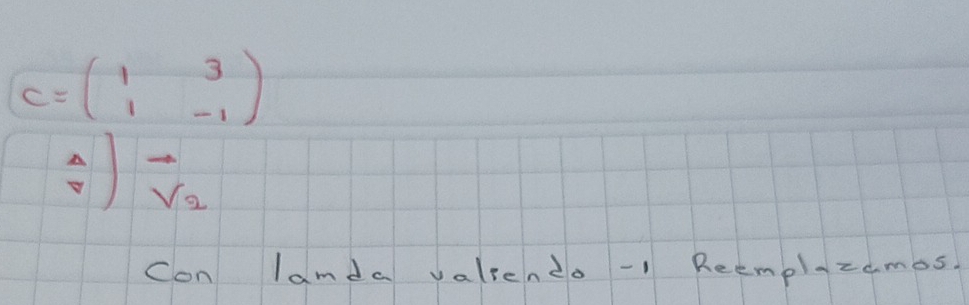 C = ( 1 3
1 -1 )
) V2
Con lamda valiendo -1 Reemplazamos.